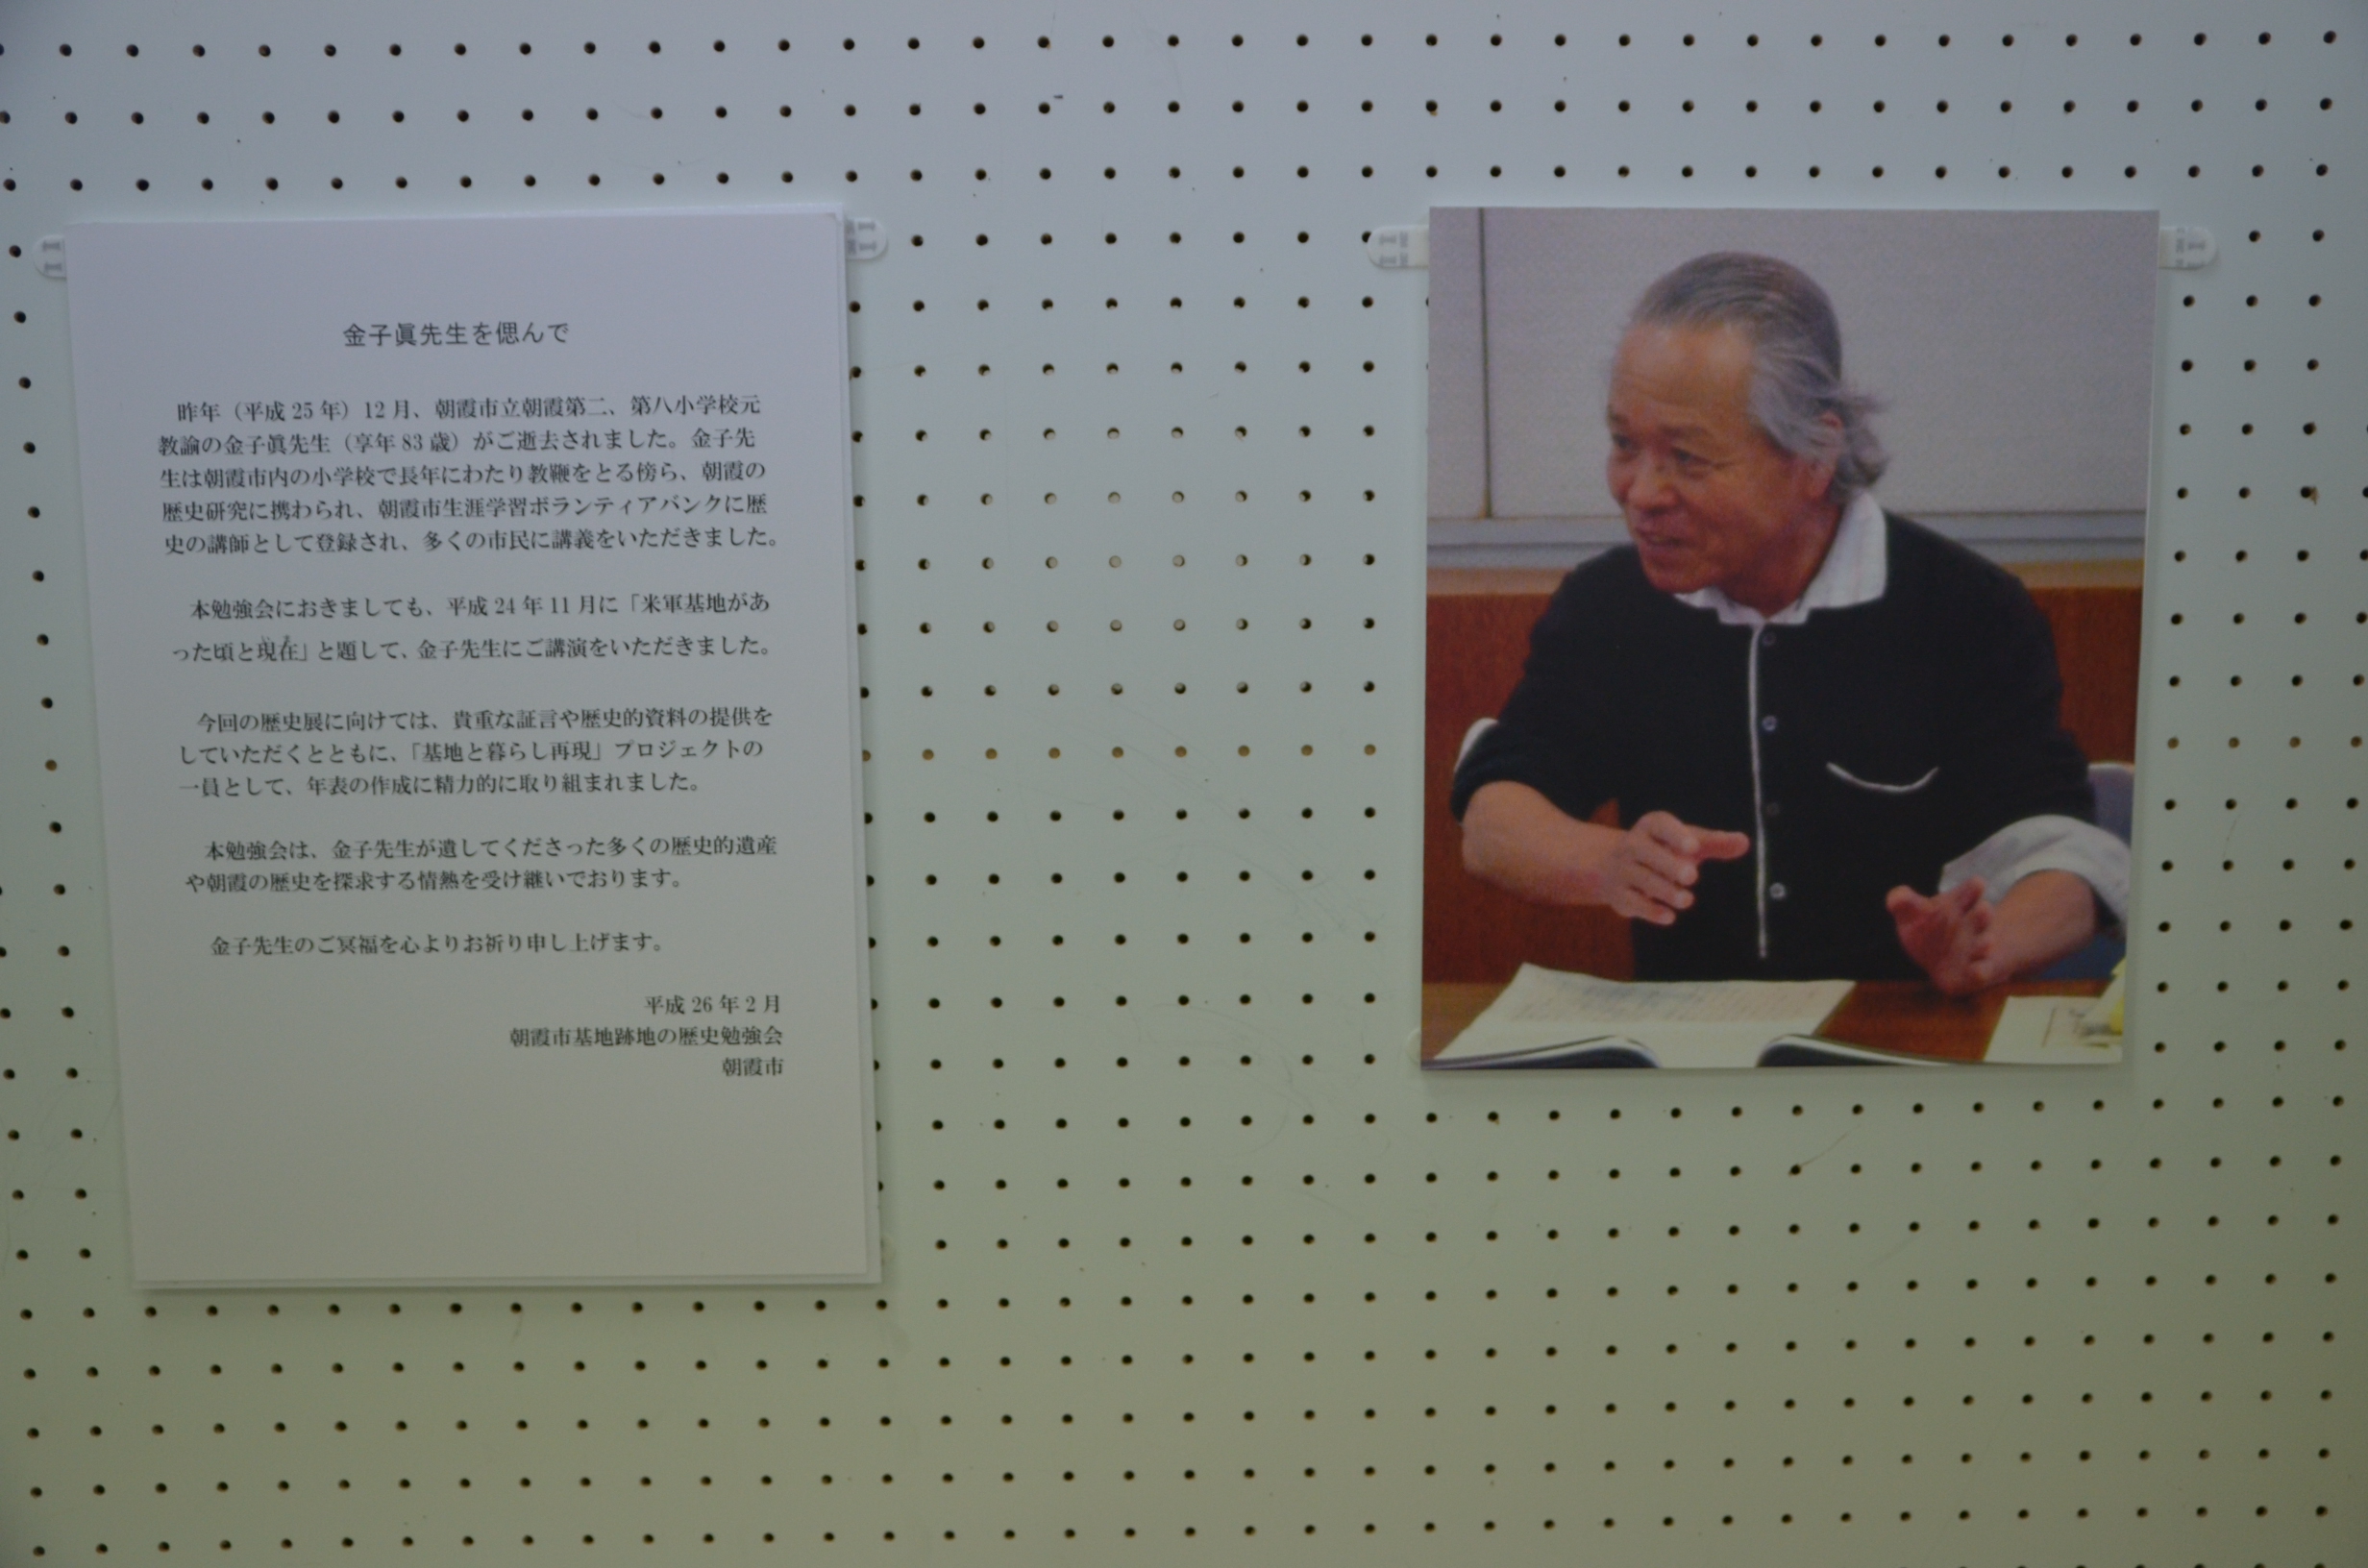 金子眞先生を偲んで
昨年（平成25年）12月、朝霞市立朝霞第二、第八小学校元
教諭の金子眞先生（享年83歳）がご逝去されました。金子先
生は朝霞市内の小学校で長年にわたり教鞭をとる傍ら、朝霞の
歴史研究に携わられ、朝霞市生涯学習ボランティアバンクに歴
史の講師として登録され、多くの市民に講義をいただきました。
本勉強会におきましても、平成24年11月に「米軍基地があ
った頃と現在」と題して、金子先生にご講演をいただきました。
今回の歴史展に向けては、貴重な証言や歴史的資料の提供を
していただくとともに、「基地と暮らし再現」プロジェクトの
一員として、年表の作成に精力的に取り組まれました。
本勉強会は、金子先生が遺してくださった多くの歴史的遺産
や朝霞の歴史を探求する情熱を受け継いでおります。
金子先生のご冥福を心よりお祈り申し上げます。
平成26年2月
朝霞市基地跡地の歴史勉強会
朝霞市